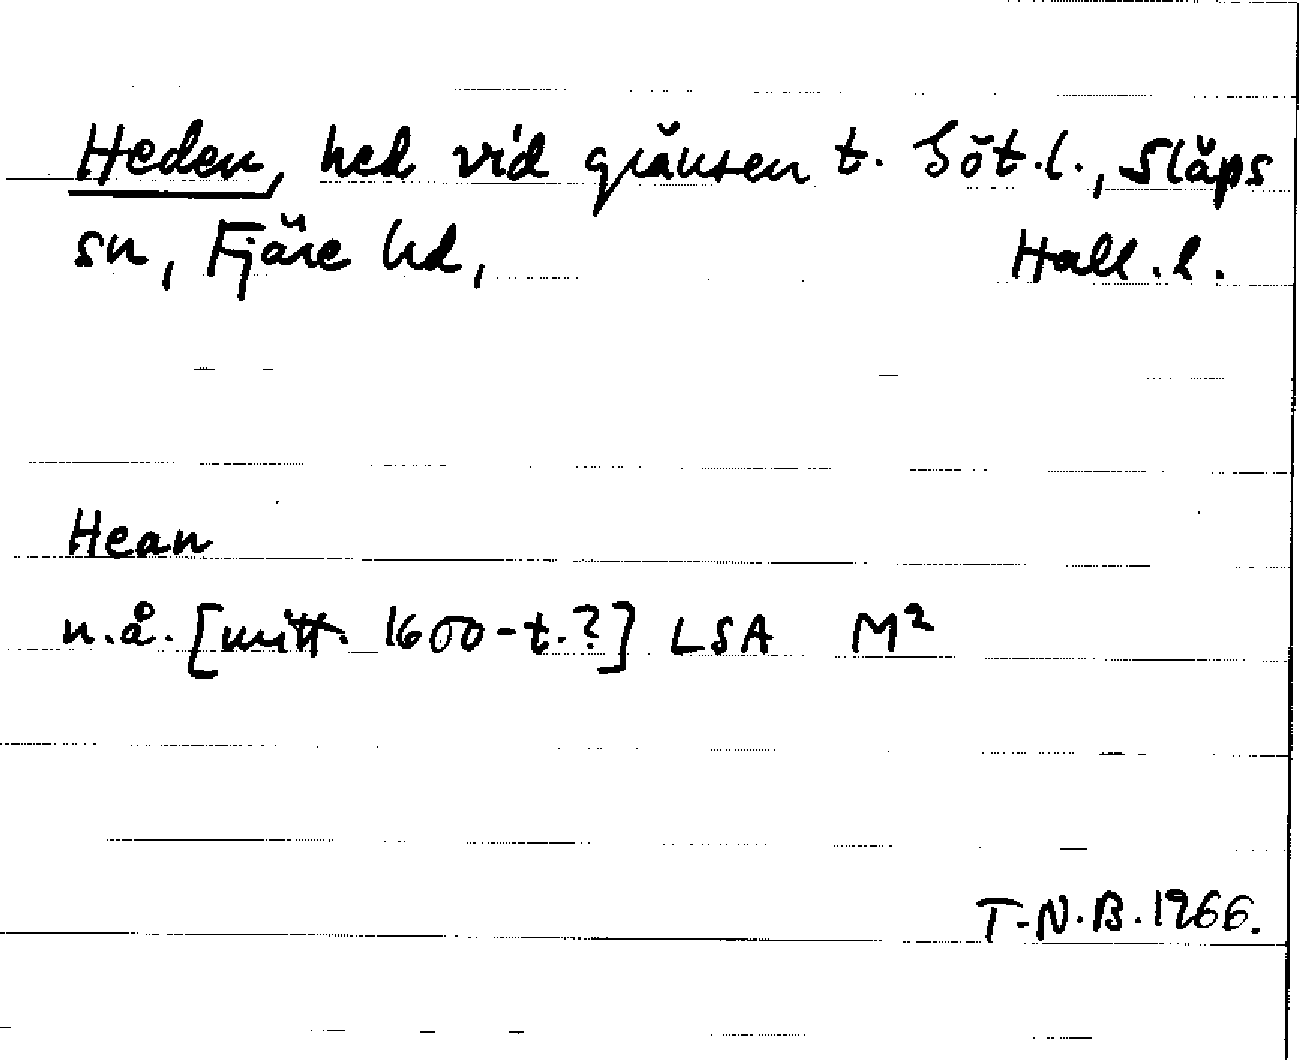 Heden, hed vid gränsen t. Göt.l., Släps
sn, Fjäre hd, Hall.l.
Hean
n.å. [mitt. 1600-t.?] LSA M²
T-N.B. 1966.